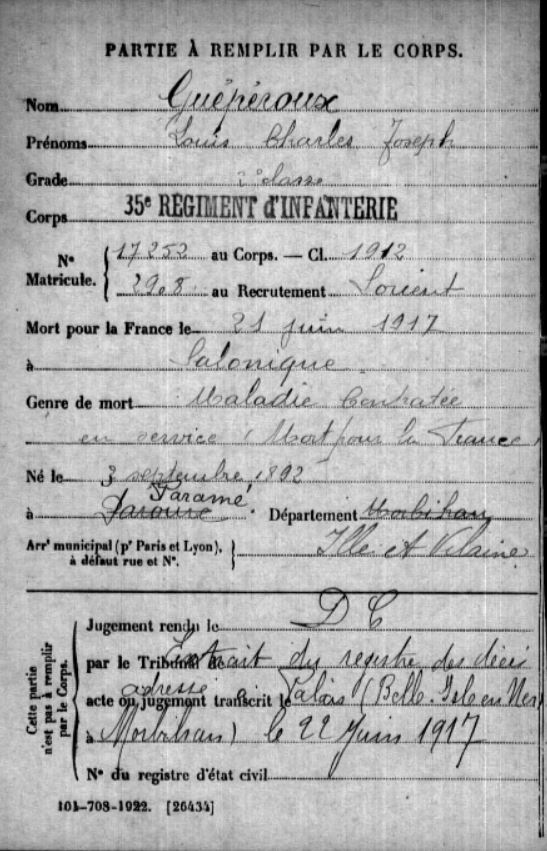 PARTIE À REMPLIR PAR LE CORPS.
Nom Guépéroux
Prénoms Louis Charles Joseph
Grade 2e classe
Corps 35e RÉGIMENT d'INFANTERIE
No Matricule. 17252 au Corps. — Cl. 1912
2908 au Recrutement Lorient
Mort pour la France le 21 juin 1917
à Salonique
Genre de mort Maladie Contratée
en service (Mort pour la France)
Né le 3 septembre 1892
Paramé
à Département Morbihan
Arrt municipal (pr Paris et Lyon), à défaut rue et No. Ille et Vilaine
Cette partie n'est pas à remplir par le Corps.
Jugement rendu le D C
par le Tribunal de Extrait du registre des décès
adressé
acte ou jugement transcrit le à Palais (Belle-Isle en Mer
à Morbihan) le 22 Juin 1917
No du registre d'état civil
101-708-1922. [26434]